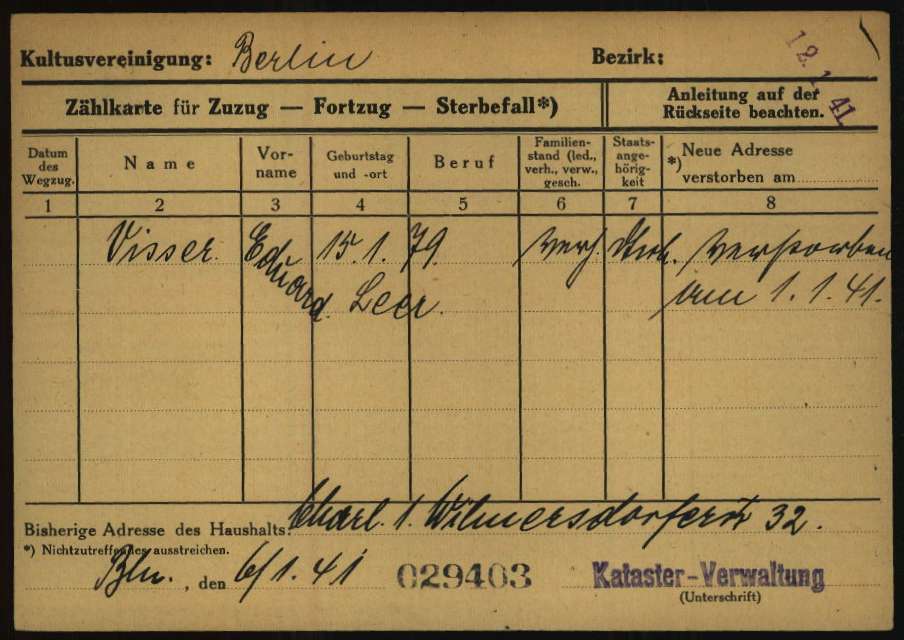 Kultusvereinigung: Berlin Bezirk:
12.1.41.
Zählkarte für Zuzug — Fortzug — Sterbefall*)
Anleitung auf der
Rückseite beachten.
Datum des Wegzug. Name Vor-name Geburtstag und -ort Beruf Familien-stand (led., verh., verw., gesch. Staats-ange-hörig-keit *) Neue Adresse verstorben am
1 2 3 4 5 6 7 8
Visser. Eduard. 15.1.79. verh. verstorben
Leer. am 1.1.41.
Bisherige Adresse des Haushalts: Charl. 1. Wilmersdorferstr 32.
*) Nichtzutreffendes ausstreichen.
Bln., den 6/1.41 029403 Kataster-Verwaltung
(Unterschrift)